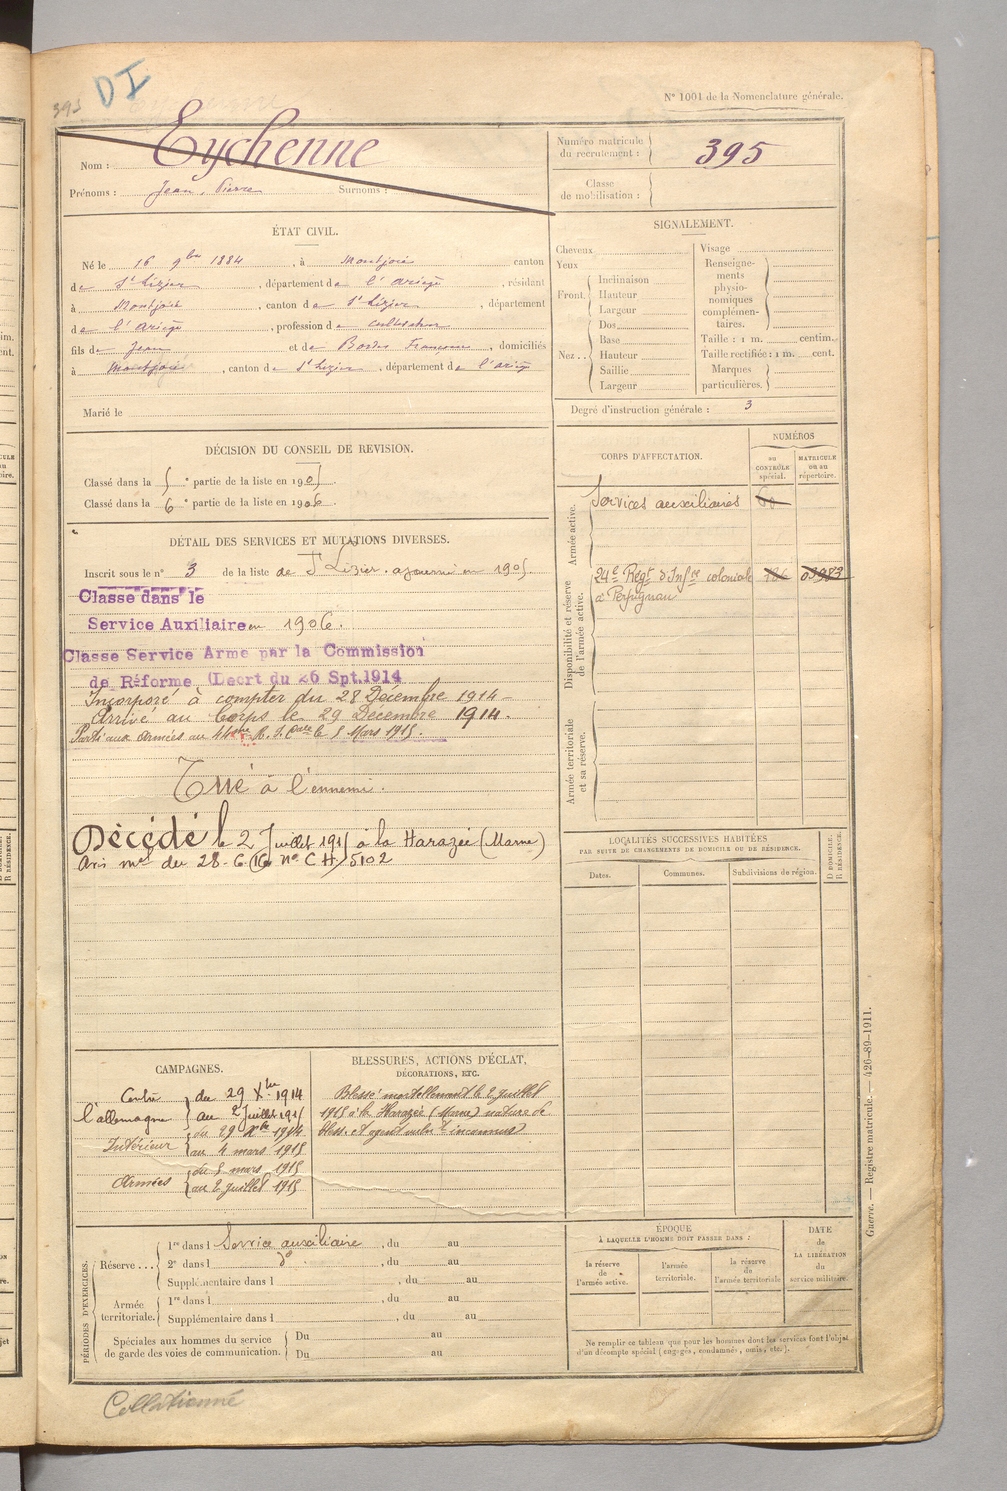 395
DI
N° 1001 de la Nomenclature générale.
Nom : Eychenne
Prénoms : Jean, Pierre Surnoms :
Numéro matricule du recrutement : 395
Classe de mobilisation :
ÉTAT CIVIL.
Né le 16 9bre 1884, à Montjoie canton
de St Lizier, département de l'Ariège, résidant
à Montjoie, canton de St Lizier, département
de l'Ariège, profession de cultivateur
fils de Jean et de Bordes Françoise, domiciliés
à Montjoie, canton de St Lizier, département de l'Ariège
Marié le
SIGNALEMENT.
Cheveux
Yeux
Front. Inclinaison
Hauteur
Largeur
Nez . . Dos
Base
Hauteur
Saillie
Largeur
Visage
Renseigne-
ments
physio-
nomiques
complémen-
taires.
Taille : 1 m. centim.
Taille rectifiée : 1 m. cent.
Marques
particulières.
Degré d'instruction générale : 3
DÉCISION DU CONSEIL DE REVISION.
Classé dans la 5e partie de la liste en 1905.
Classé dans la 6e partie de la liste en 1906.
DÉTAIL DES SERVICES ET MUTATIONS DIVERSES.
Inscrit sous le n° 3 de la liste de St Lizier. ajourné en 1905
Classé dans le
Service Auxiliaire en 1906.
Classe Service Armé par la Commission
de Réforme (Decrt du 26 Spt.1914
Incorporé à compter du 28 Décembre 1914
Arrivé au Corps le 29 Décembre 1914.
Parti aux Armées au 44ème R. I. Cale le 5 Mars 1915.
Tué à l'ennemi.
Décédé le 2 Juillet 1915 à la Harazée (Marne)
Avis mel du 28-6-16 n° CH 5102
CORPS D'AFFECTATION.
NUMÉROS
au CONTRÔLE spécial.
MATRICULE ou au répertoire.
Armée active.
Services auxiliaires
Disponibilité et réserve de l'armée active.
24e Regt d'Infie coloniale
à Perpignan
Armée territoriale et sa réserve.
LOCALITÉS SUCCESSIVES HABITÉES
PAR SUITE DE CHANGEMENTS DE DOMICILE OU DE RÉSIDENCE.
Dates. Communes. Subdivisions de région.
D DOMICILE.
R RÉSIDENCE.
CAMPAGNES.
Contre du 29 Xbre 1914
l'allemagne au 2 Juillet 1915
Intérieur du 29 Xbre 1914
au 4 mars 1915
Armées du 5 mars 1915
au 2 juillet 1915
BLESSURES, ACTIONS D'ÉCLAT,
DÉCORATIONS, ETC.
Blessé mortellement le 2 juillet
1915 à la Harazée (Marne) nature de
PÉRIODES D'EXERCICES.
Réserve . . . 1re dans l Service auxiliaire, du au
2e dans l do, du au
Supplémentaire dans l, du au
Armée territoriale. 1re dans l, du au
Supplémentaire dans l, du au
Spéciales aux hommes du service
de garde des voies de communication.
Du au
Du au
ÉPOQUE
À LAQUELLE L'HOMME DOIT PASSER DANS :
la réserve de l'armée active.
l'armée territoriale.
la réserve de l'armée territoriale
DATE
de
LA LIBÉRATION
du
service militaire.
Ne remplir ce tableau que pour les hommes dont les services font l'objet
d'un décompte spécial (engagés, condamnés, omis, etc.).
Guerre. — Registre matricule. — 426-89-1911.
Collationné